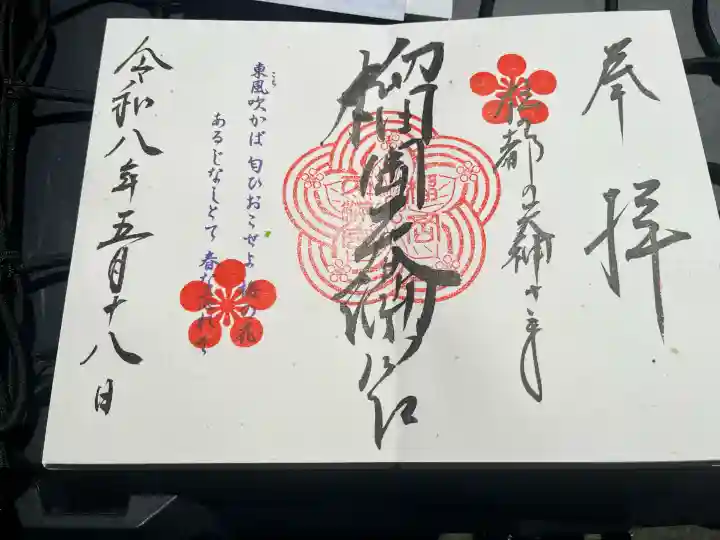 奉拝
杜の都の天神さま
榴岡天満宮
東風吹かば 匂ひおこせよ 梅の花
こち
あるじなしとて 春な忘れそ
令和八年五月十八日